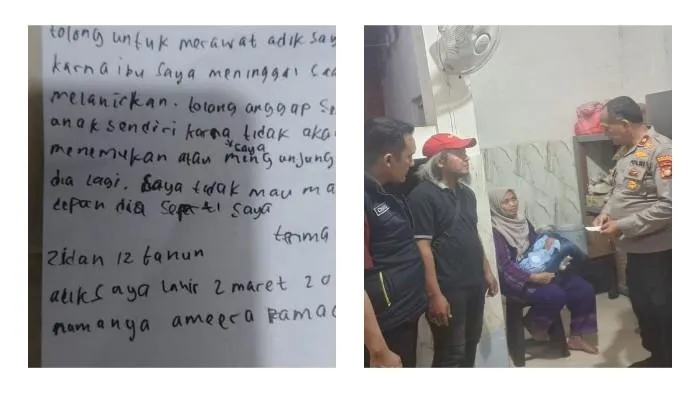 tolong untuk merawat adik say
karna ibu saya meninggal saa
melanirkan. tolong anggap se
anak sendiri karna tidak aka
*saya
menemukan atau mengunjung
dia lagi. saya tidak mau ma
depan dia seperti saya
terima
Zidan 12 tahun
adik saya lahir 2 maret 20
namanya ameera ramad